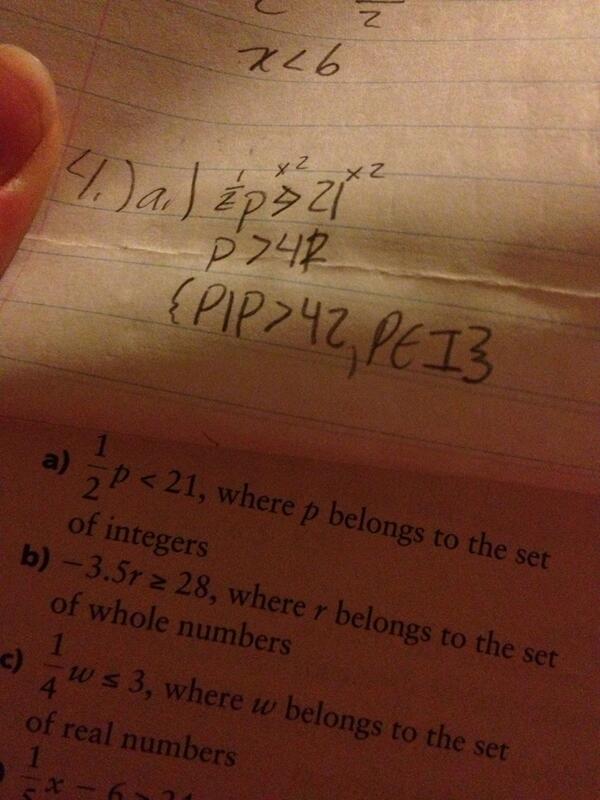 2
x<6
4.) a.) 1/2 p > 21 x2 x2
p > 42
{P|P>42, P∈I}
a) 1/2 p < 21, where p belongs to the set
of integers
b) −3.5r ≥ 28, where r belongs to the set
of whole numbers
c) 1/4 w ≤ 3, where w belongs to the set
of real numbers
1/5 x − 6 >